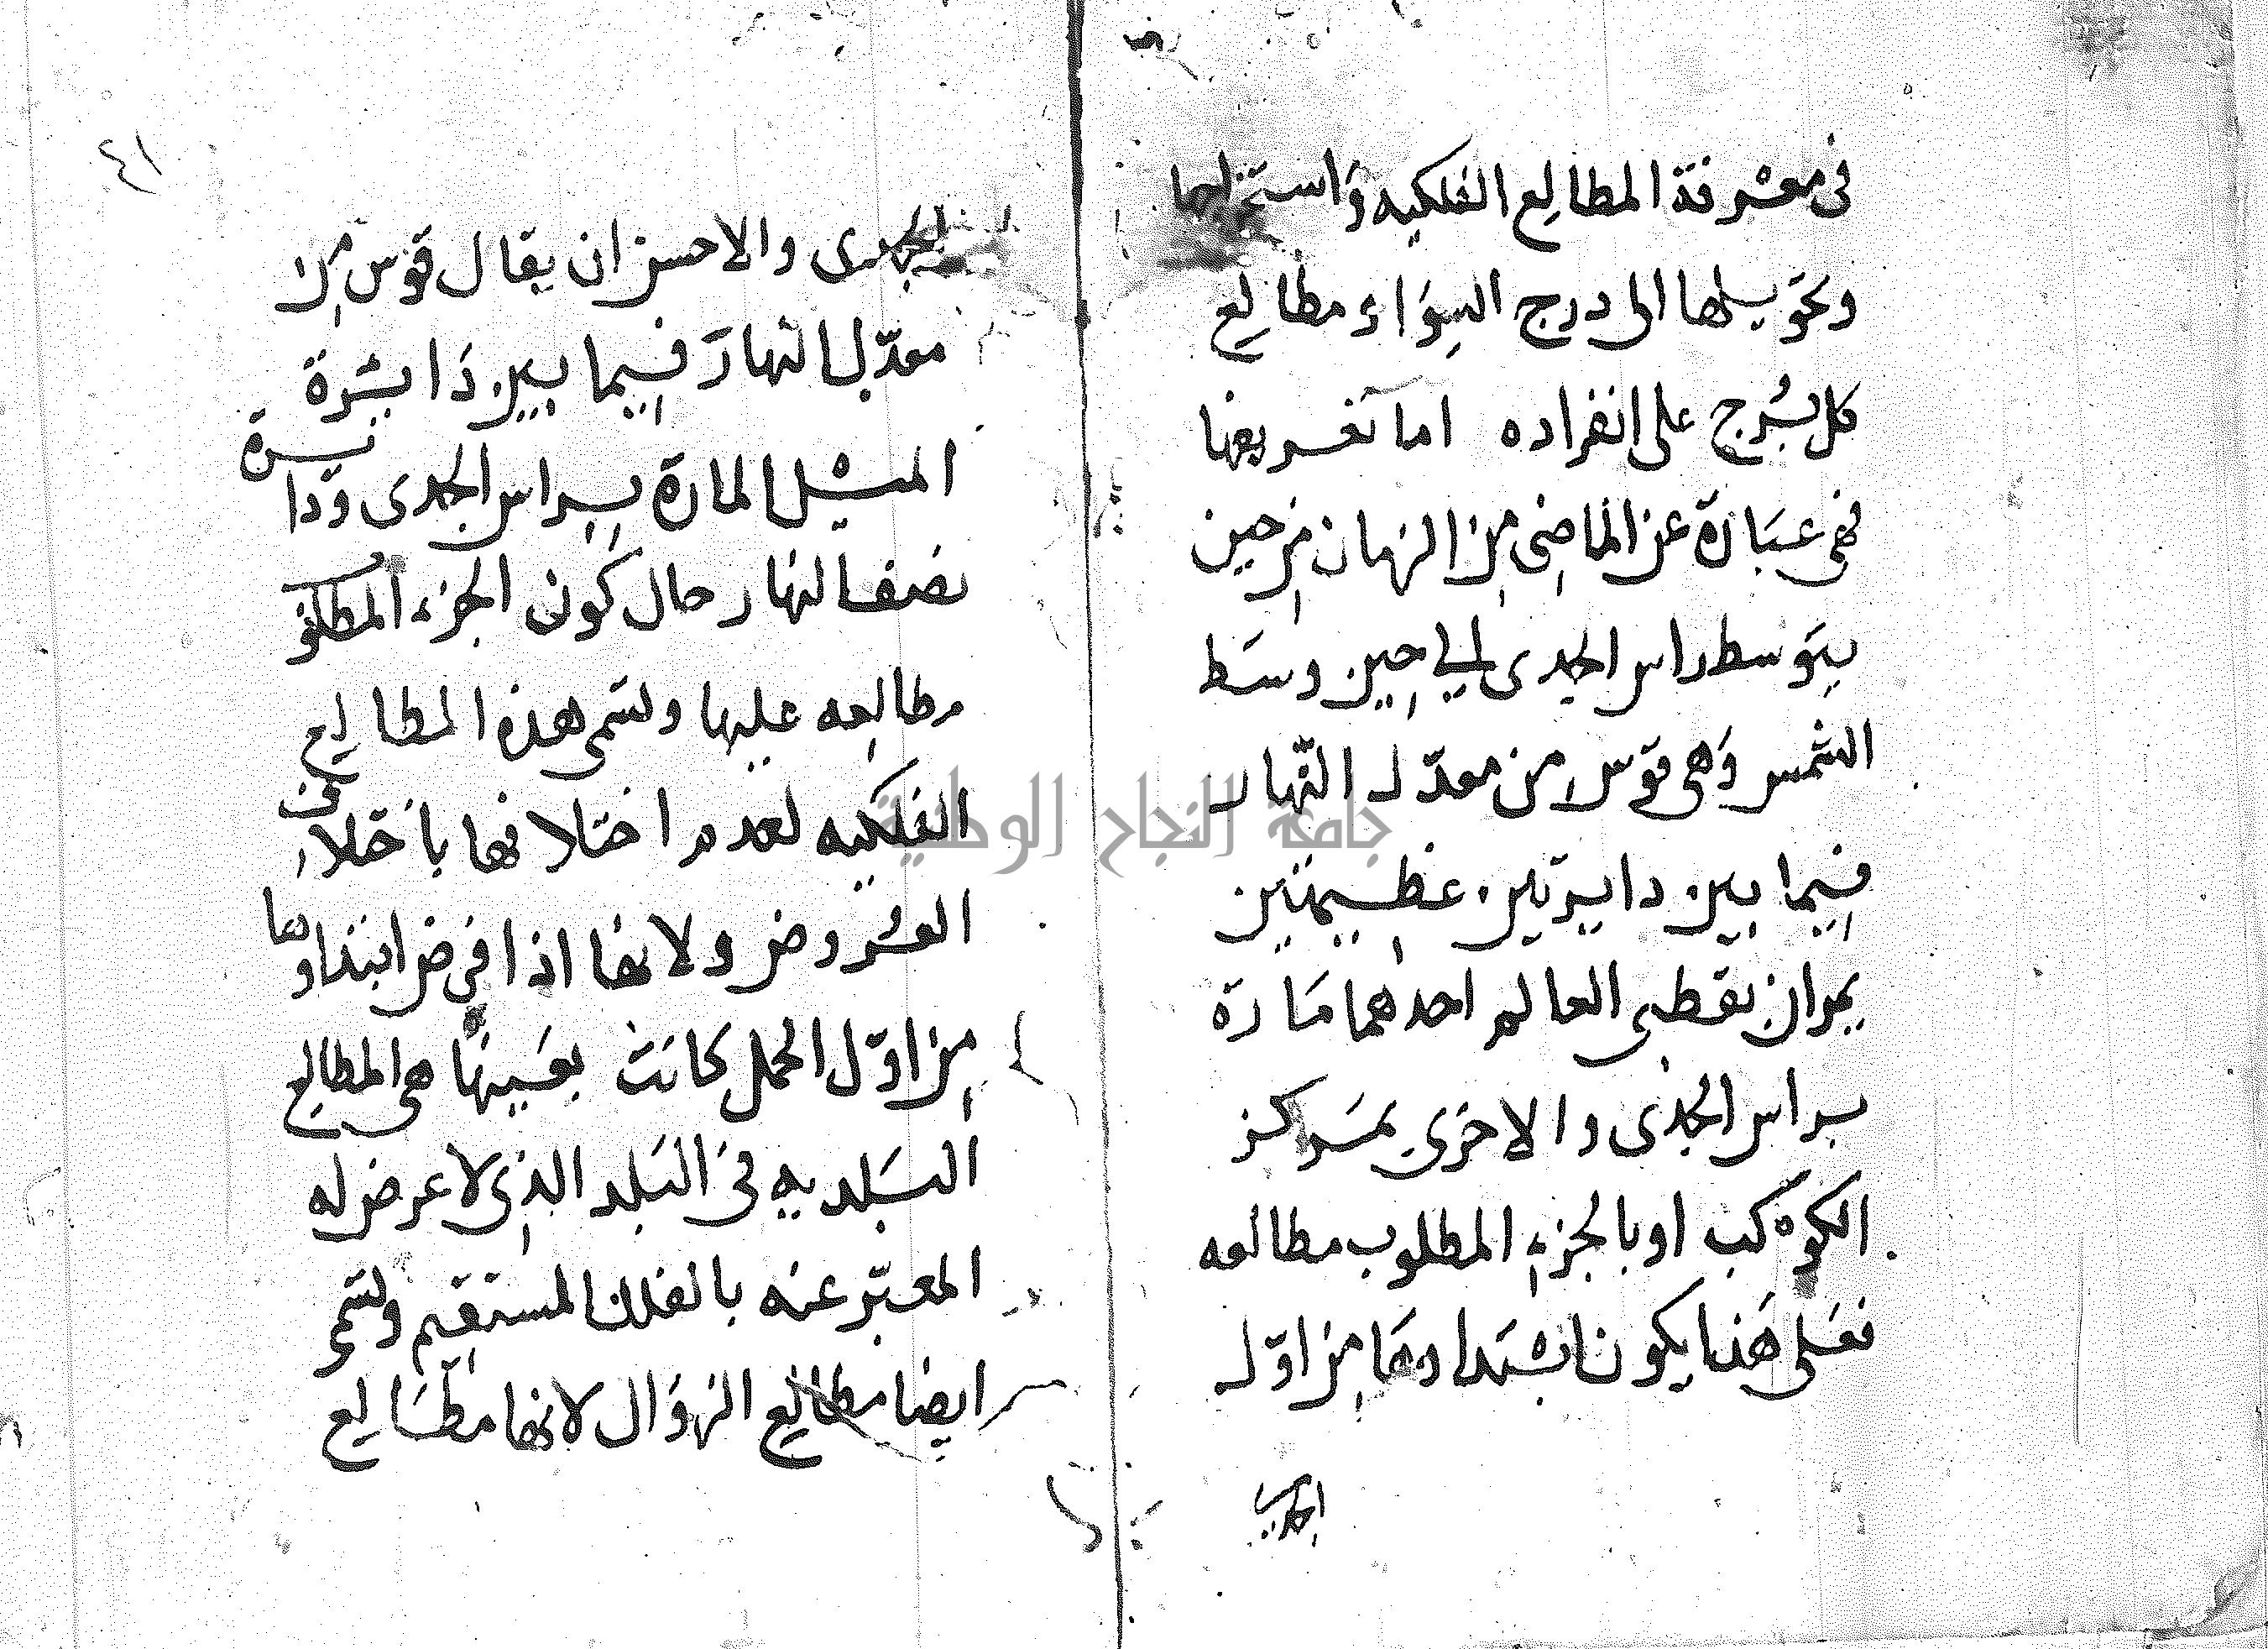 فى معرفة المطالع الفلكيه واستخراجها
وتحويلها الى درج السواء ومطالع
كل برج على انفراده اما تعريفها
فهى عبارة عن الماضى من الزمان من حين
يتوسط راس الجدى الى حين وسط
الشمس وهى قوس من معدل النهار
فيما بين دايرتين عظيمتين
يمران بقطبى العالم احدهما مارة
براس الجدى والاخرى بمركز
الكوكب او بالجزء المطلوب مطالعه
فعلى هذا يكون ابتداوها من اول
الجدى
٤١
الجدى والاحسن ان يقال قوس من
معدل النهار فيما بين دايرة
الميل المارة براس الجدى ودايرة
نصف النهار حال كون الجزء المطلوب
مطالعه عليها وتسمى هذه المطالع
الفلكيه لعدم اختلافها باختلاف
العروض ولانها اذا فرض ابتداوها
من اول الحمل كانت بعينها هى المطالع
البلديه فى البلد الذى لا عرض له
المعبر عنه بالفلك المستقيم وتسمى
ايضا مطالع الزوال لانها مطالع
جامعة النجاح الوطنية